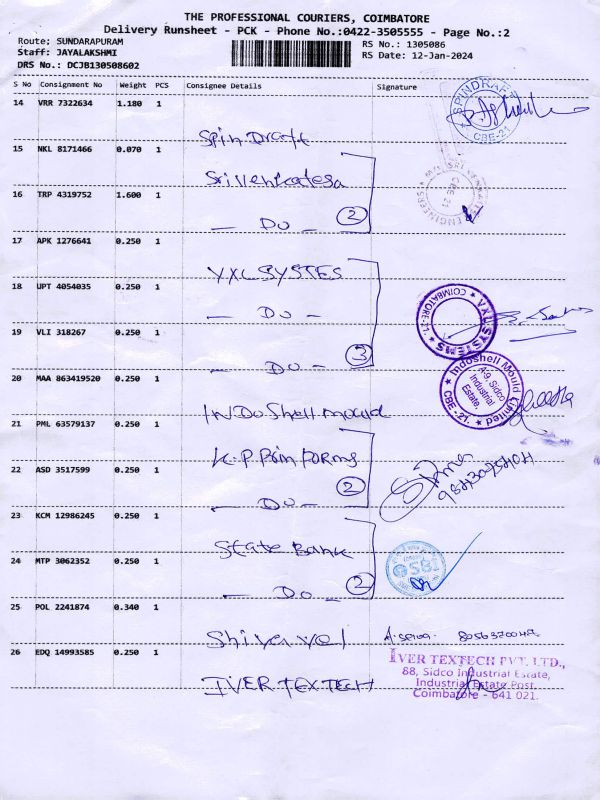 THE PROFESSIONAL COURIERS, COIMBATORE
Delivery Runsheet - PCK - Phone No.:0422-3505555 - Page No.:2
Route: SUNDARAPURAM
Staff: JAYALAKSHMI
DRS No.: DCJB130508602
RS No.: 1305086
RS Date: 12-Jan-2024
S No Consignment No Weight PCS Consignee Details Signature
14 VRR 7322634 1.180 1
Spin Draft
SPINDRAFT
CBE-21
15 NKL 8171466 0.070 1
Sri Venkatesa
16 TRP 4319752 1.600 1
— Do — 2
ENGINEERS
CBE 21
17 APK 1276641 0.250 1
VXL SYSTES
18 UPT 4054035 0.250 1
— Do —
VXL SYSTEMS
COIMBATORE-21.
19 VLI 318267 0.250 1
— Do — 3
20 MAA 863419520 0.250 1
INDo Shell mould
Indoshell Mould Limited
A-9 Sidco
Industrial
Estate.
CBE - 21.
21 PML 63579137 0.250 1
K.P. Prin Forms
22 ASD 3517599 0.250 1
— Do — 2
23 KCM 12986245 0.250 1
State Bank
24 MTP 3062352 0.250 1
— Do — 2
SBI
25 POL 2241874 0.340 1
Shivavel
26 EDQ 14993585 0.250 1
IVER TEXTECH
IVER TEXTECH PVT. LTD.,
88, Sidco Industrial Estate,
Industrial Estate Post,
Coimbatore - 641 021.